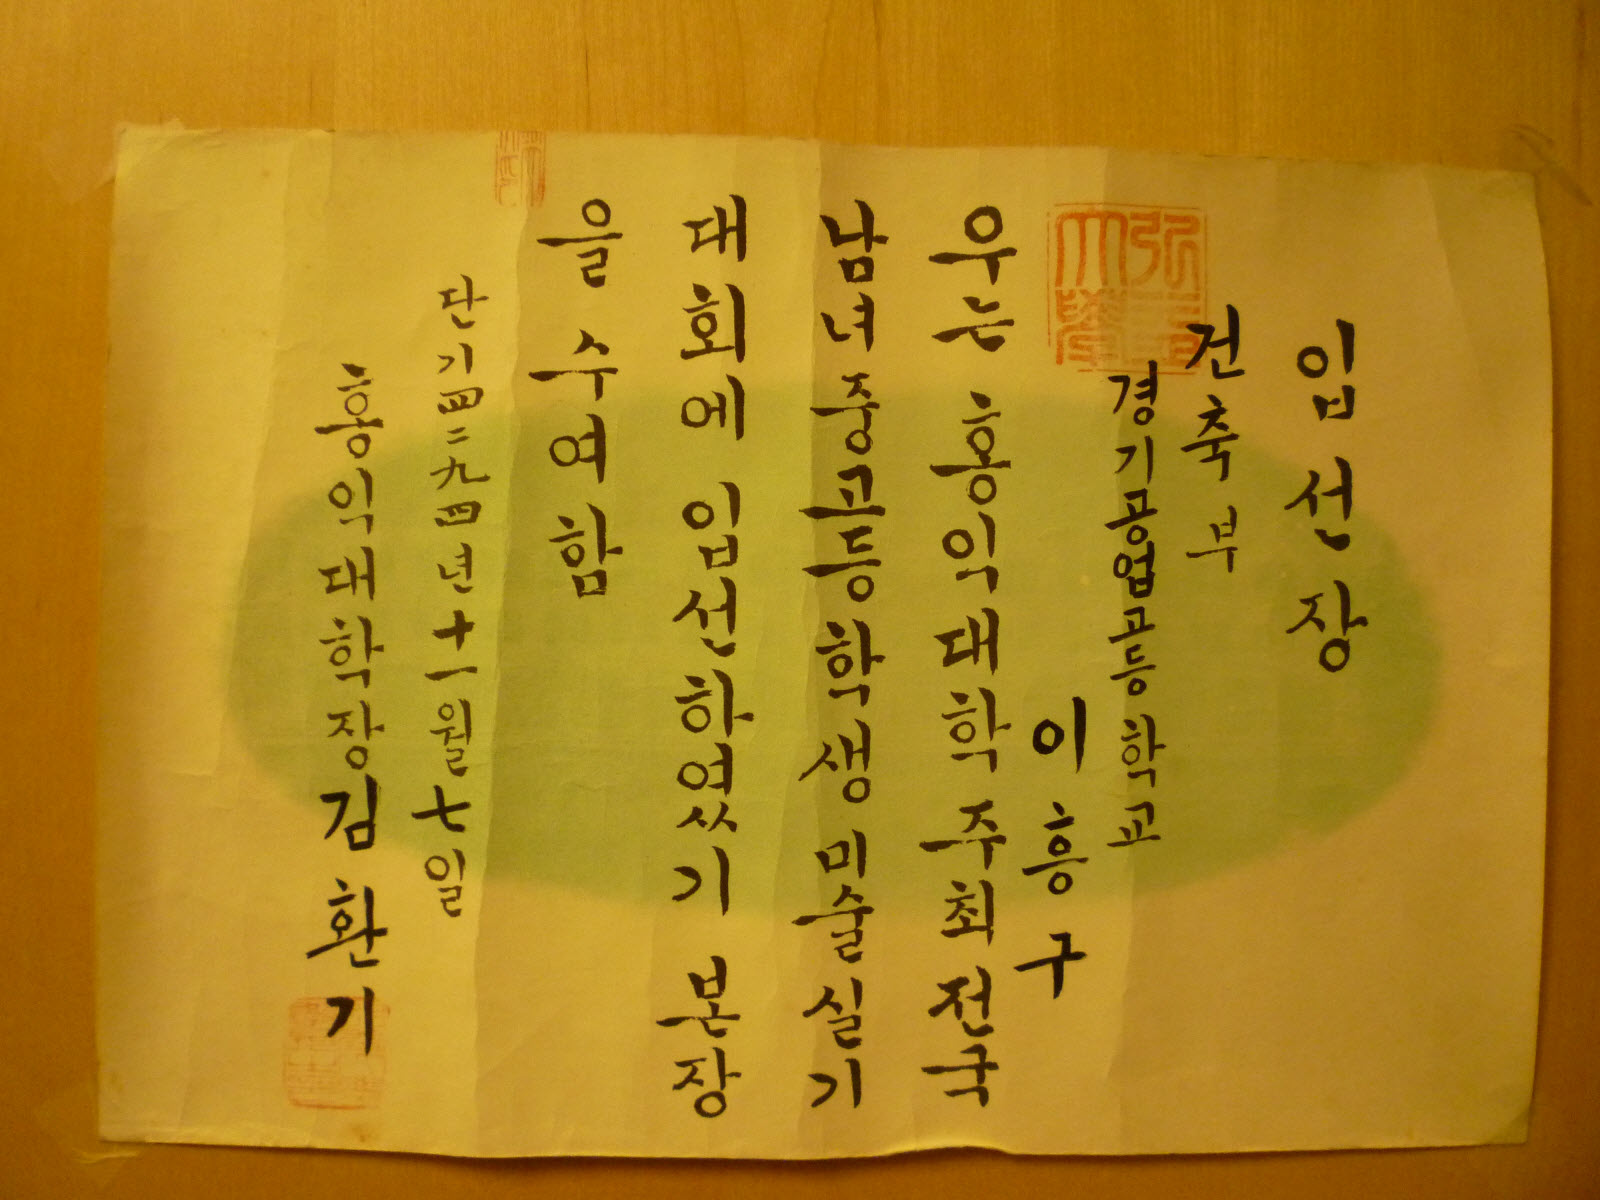 입선장
건축부
경기공업고등학교
이흥구
우는 홍익대학 주최 전국
남녀 중고등학생 미술 실기
대회에 입선하였기 본장
을 수여함
단기四二九四년 十一월 七일
홍익대학장 김환기
弘益大學